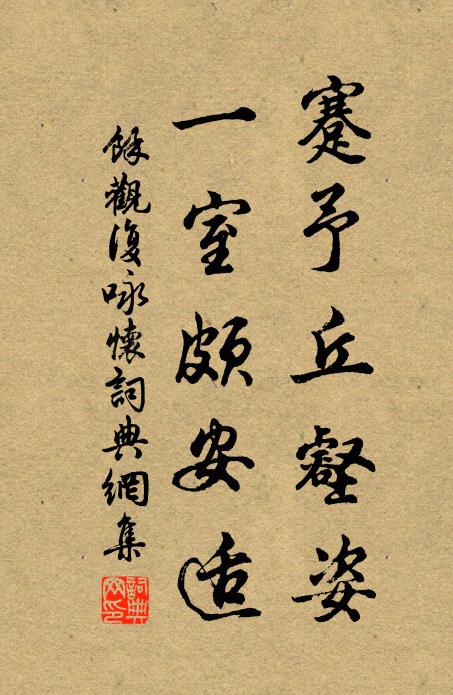 蹇予丘壑姿
一室頗安适
餘觀復咏懷詞典網集
詞典網印